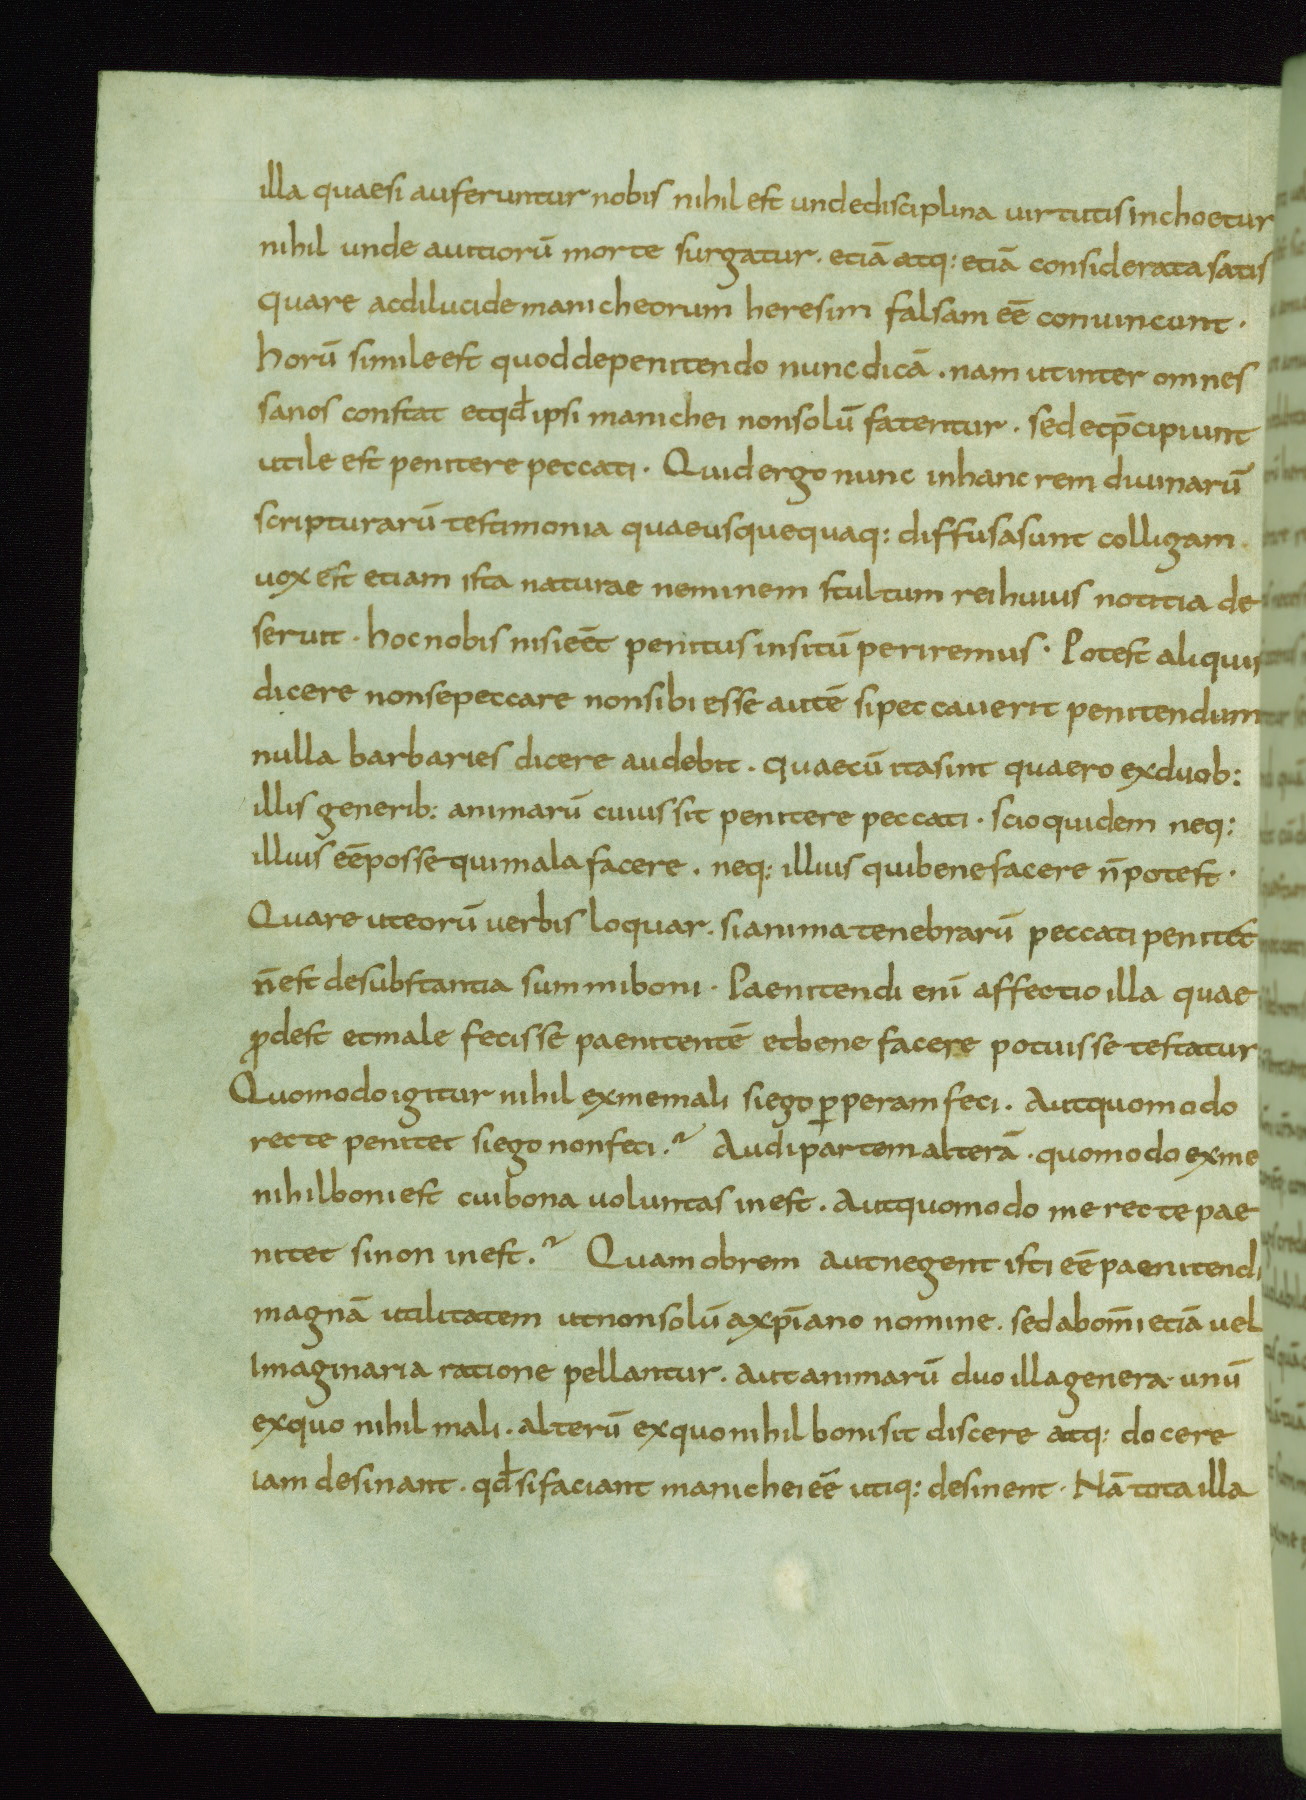 illa quaesi auferuntur nobis nihil est undedisciplina uirtutis inchoetur
nihil unde auitiorū morte surgatur. etiā atq: etiā considerata satis
quare acdilucide manicheorum heresim falsam eē conuincunt.
horū simile est quod depenitendo nunc dicā. nam ut inter omnes
sanos constat etqđ ipsi manichei nonsolū fatentur. sed etp̄cipiunt
utile est penitere peccati. Quid ergo nunc inhanc rem diuinarū
scripturarū testimonia quaeusquequaq: diffusasunt colligam.
uox est etiam ista naturae neminem stultum rei huius notitia de
seruit. hoc nobis nisi eēt penitus insitū periremus. Potest aliquis
dicere nonsepeccare nonsibi esse autē sipeccauerit penitendum
nulla barbaries dicere audebit. quaecū itasint quaero exduob:
illis generib: animarū cuius sit penitere peccati. scio quidem neq:
illius eē posse qui mala facere. neq: illius qui bene facere n̄ potest.
Quare uteorū uerbis loquar. si anima tenebrarū peccati penitet
n̄ est desubstantia summi boni. Paenitendi enī affectio illa quae
ꝓdest etmale fecisse paenitentē etbene facere potuisse testatur
Quomodo igitur nihil exmemali siego ꝑperam feci. Autquomodo
recte penitet siego nonfeci.? Audi partem alterā. quomodo exme
nihil boni est cui bona uoluntas inest. Autquomodo me recte pae
nitet sinon inest.? Quamobrem autnegent isti eē paenitendi
magnā utilitatem utnonsolū axp̄iano nomine. sed abom̄i etiā uel
Imaginaria ratione pellantur. Aut animarū duo illa genera unū
exquo nihil mali. alterū exquo nihil boni sit discere atq: docere
iam desinant. qđ si faciant manichei eē utiq: desinent. Nā tota illa